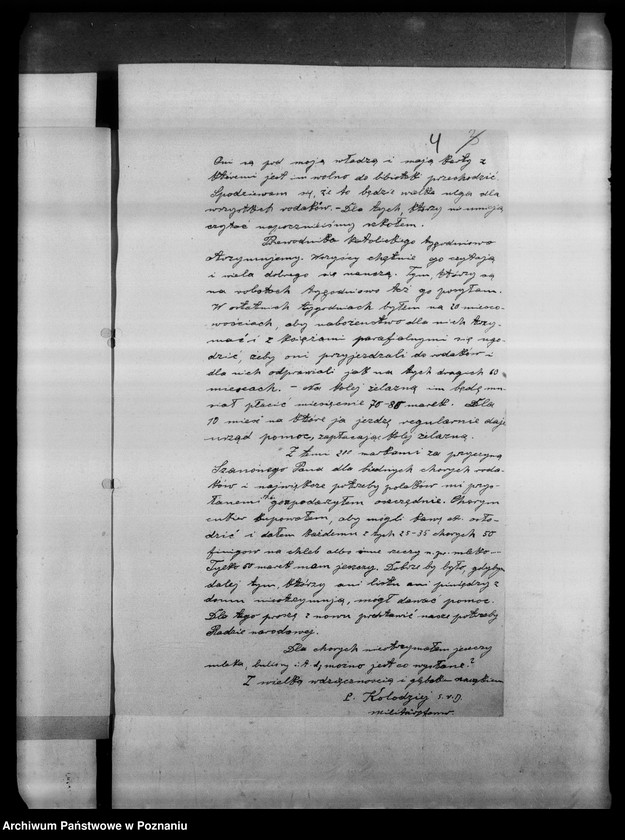 4
Oni są pod moją władzą i mają karty z
któremi jest im wolno do bibliotek przechodzić
Spodziewam się, że to będzie wielka ulga dla
wszystkich rodaków. – Dla tych, którzy nie umieją
czytać napoczniesimy szkołem.
Przewodnika katolickiego tygodniowo
otrzymujemy. Wszyscy chętnie go czytają
i wiela dobrego się nauczą. Tym, którzy są
na robotach tygodniowo też go posyłam.
W ostatnich tygodniach byłem na 20 miejsco-
wościach, aby nabożeństwo dla nich trzy-
mać i z księżami parafialnymi się ugo-
dzić, żeby oni przyjeżdzali do rodaków i
dla nich odprawiali jak na tych drugich 60
miejscach. – Na kolej żelazną im będę mu-
siał płacić miesięcznie 70-80 marek. Dla
10 miejsc na które ja jeżdżę regularnie daje
urząd pomoc, zapłacając kolej żelazną.
Z temi 200 markami za przyczyną
Szanownego Pana dla biednych chorych roda-
ków i największe potrzeby polaków mi przy-
słanemi gospodarzyłem oszczędnie. Chorym
cukier kupowałem, aby mogli kawę osło-
dzić i dałem każdemu z tych 25-35 chorych 50
finigów na chleb albo inne rzeczy n.pr. mleko –
Tylko 60 marek mam jeszczy. Dobrze by było, gdybym
dalej tym, którzy ani listu ani piniędzy z
domu nieotrzymują, mógł dawać pomoc.
Dla tego proszę z nowu przedstawić nasze potrzeby
Radzie narodowej.
Dla chorych nieotrzymałem jeszczy
mleka, bulionu i.t.d, możno jest co wysłane?
Z wielką wdzięcznością i głębokim szacunkiem
L. Kolodziej S.V.D
Archiwum Państwowe w Poznaniu